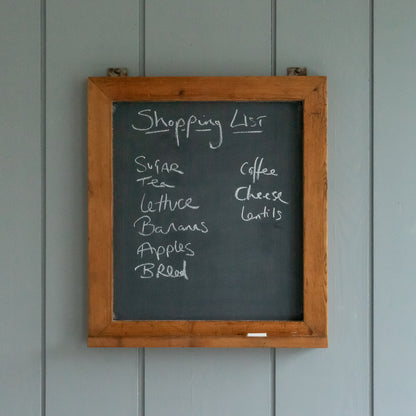 Shopping List
Sugar
Tea
Lettuce
Bananas
Apples
Bread
Coffee
Cheese
Lentils